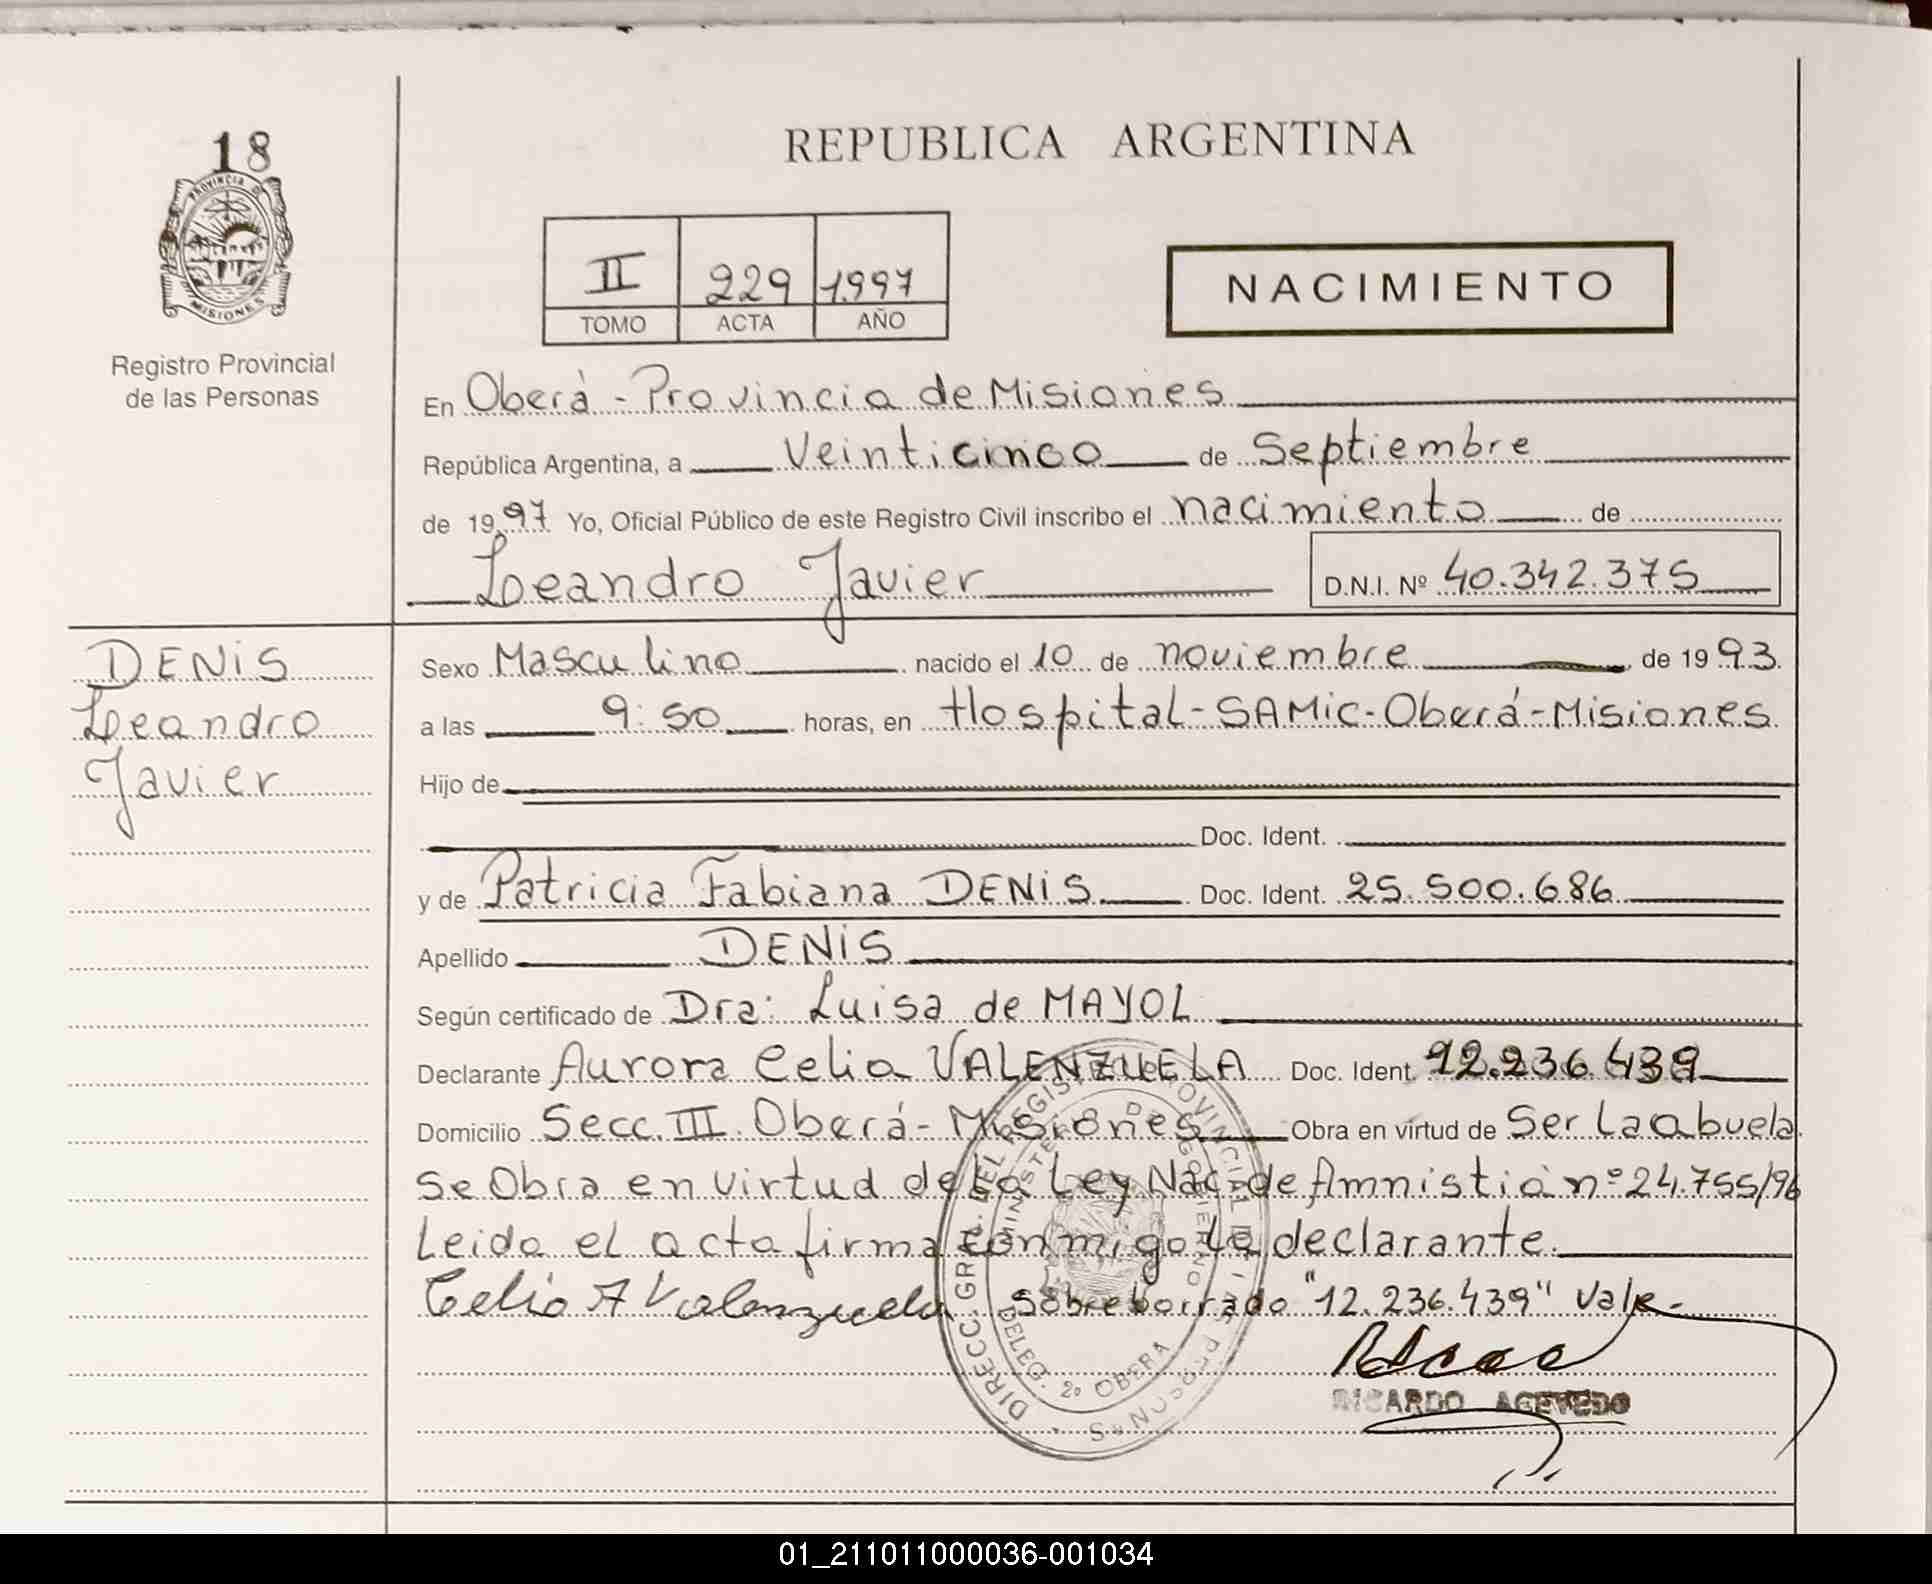 18
PROVINCIA D
MISIONES
Registro Provincial
de las Personas
REPUBLICA ARGENTINA
II 229 1997
TOMO ACTA AÑO
NACIMIENTO
En Oberá - Provincia de Misiones
República Argentina, a veinticinco de Septiembre
de 1997 Yo, Oficial Público de este Registro Civil inscribo el nacimiento de
Leandro Javier D.N.I. Nº 40.342.375
DENIS
Leandro
Javier
Sexo Masculino nacido el 10 de noviembre de 1993
a las 9:50 horas, en Hospital-SAMIC-Oberá-Misiones
Hijo de
Doc. Ident.
y de Patricia Fabiana DENIS Doc. Ident. 25.500.686
Apellido DENIS
Según certificado de Dra: Luisa de MAYOL
Declarante Aurora Celia VALENZUELA Doc. Ident. 12.236.439
Domicilio Secc. III. Oberá - Misiones Obra en virtud de Ser La abuela
Se Obra en virtud de La Ley Nac. de Amnistia nº 24.755/96
Leida el acta firma conmigo La declarante.
Celia A Valenzuela Sobreborrado "12.236.439" Vale-
DIRECC. GRAL. DEL REGISTRO PROVINCIAL DE LAS PERSONAS
MINISTERIO DE GOBIERNO
DELEG. 2º OBERA
RICARDO ACEVEDO
01_211011000036-001034